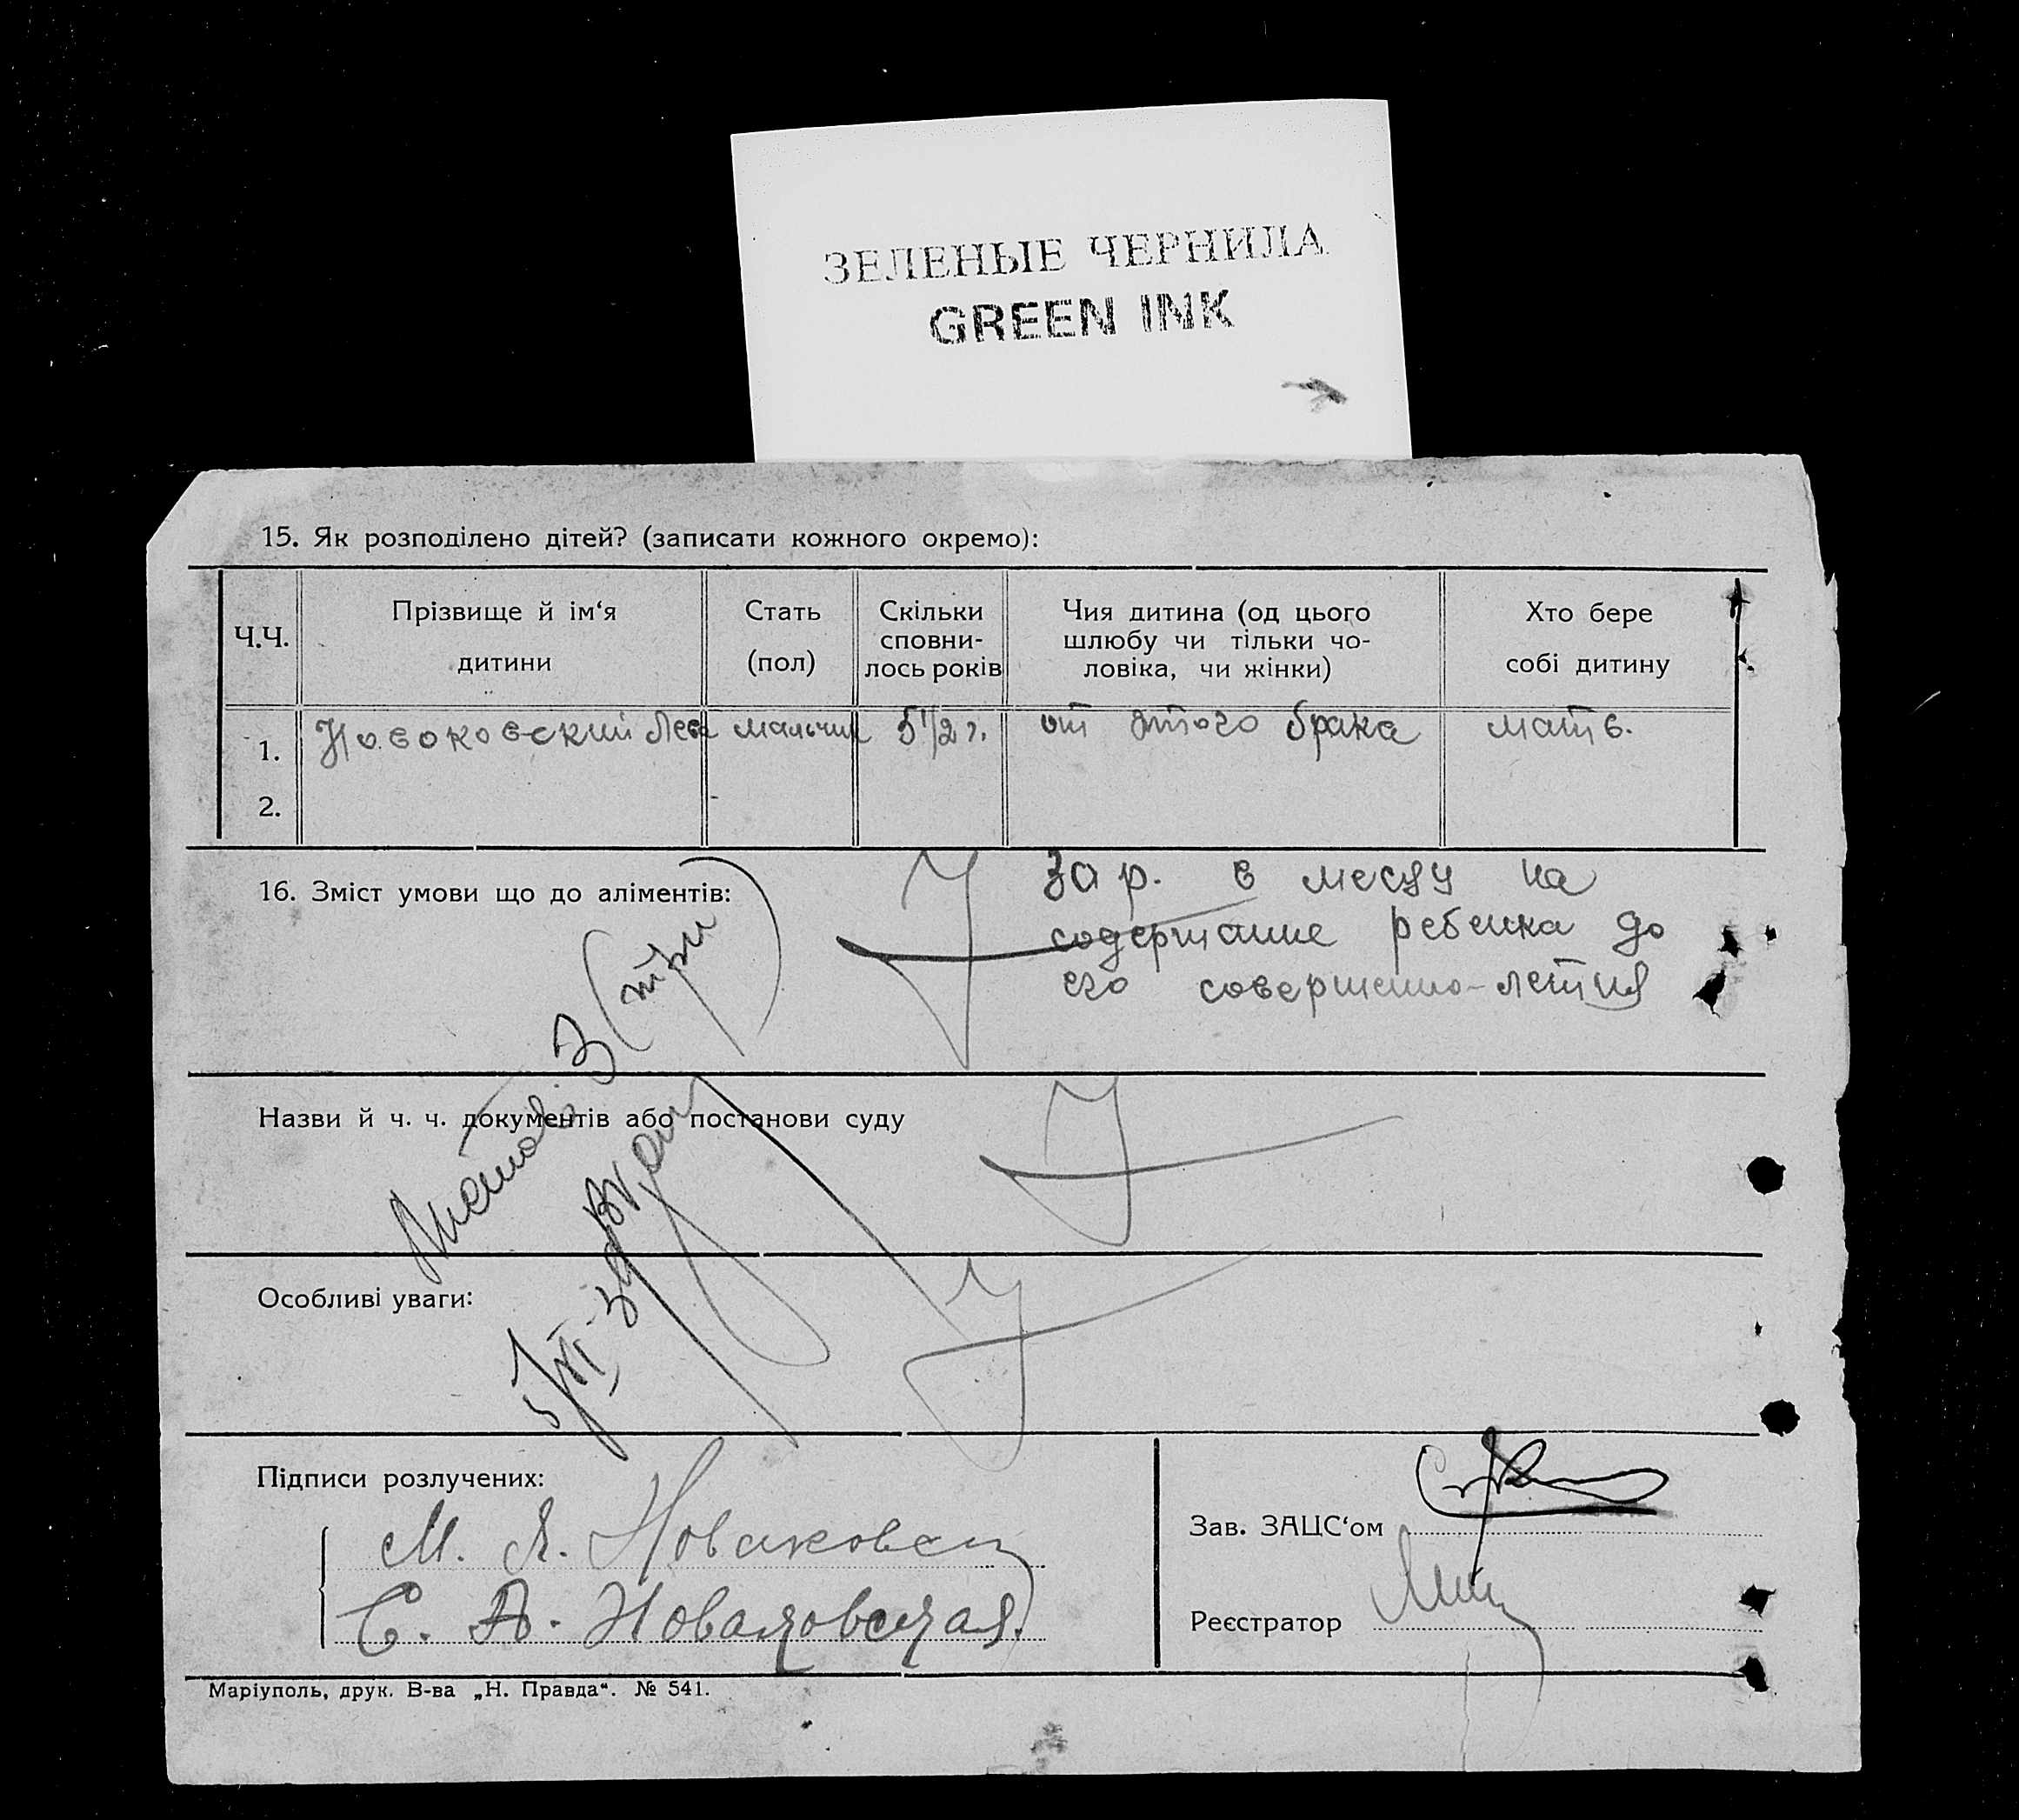 ЗЕЛЕНЫЕ ЧЕРНИЛА
GREEN INK
15. Як розподілено дітей? (записати кожного окремо):
Ч.Ч.
Прізвище й ім‘я
дитини
Стать
(пол)
Скільки
сповни-
лось років
Чия дитина (од цього
шлюбу чи тільки чо-
ловіка, чи жінки)
Хто бере
собі дитину
1.
Новоковский Лева
мальчик
5 1/2 г.
от этого брака
мать.
2.
16. Зміст умови що до аліментів:
30 р. в месяц на
содержание ребенка до
его совершенно-летия
Листов 3 (три)
Назви й ч. ч. документів або постанови суду
Особливі уваги:
Підписи розлучених:
М. Я. Новаковский
С. А. Новаковская.
Зав. ЗАЦС‘ом
Реєстратор
Маріуполь, друк. В-ва „Н. Правда“. № 541.